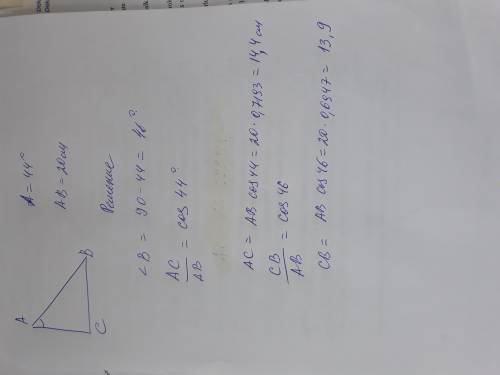 A = 44°
AB = 20 см
A
B
C
Решение
∠B = 90 - 44 = 46°
AC/AB = cos 44°
AC = AB cos 44 = 20 · 0,7193 = 14,4 см
CB/AB = cos 46
CB = AB cos 46 = 20 · 0,6947 = 13,9